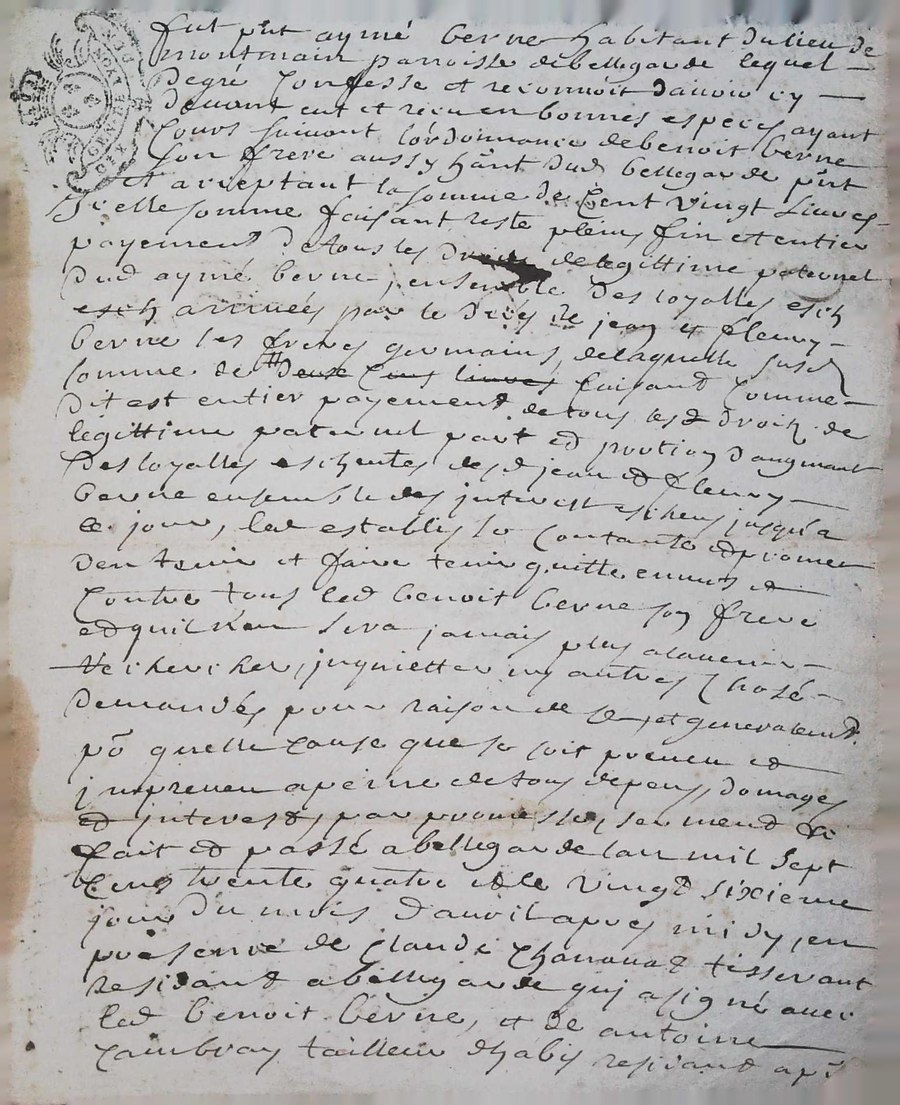 fut pnt aymé berne habitant du lieu de
montmain parroisse de bellegarde lequel
de gre confesse et reconnoit davoir cy
devant eut et receu en bonnes especes ayant
cours suivant lordonnance de benoit berne
son frere aussy hant dud bellegarde pnt
et acceptant la somme de cent vingt livres
Icelle somme faisant reste pleins fin et entier
payement de tous les droits de legittime paternel
dud aymé berne, ensemble des loyalles esch
esch arrivées par le dces de jean et fleury
berne ses freres germains, de laquelle susd
somme de deux cens livres faisant comme
dit est entier payement de tous lesd droits de
legittime paternel part et portion daugmant
des loyalles escheutes desd jean et fleury
berne ensemble des interest escheus jusqua
ce jour, led establis se contante et promet
den tenir et faire tenir quitte envers et
contre tous led benoit berne son frere
et quil nen sera jamais plus aladvenir
recherchés, inquietter ny autres chose
demandés pour raison de ce, et generalemt
po quelle cause que se soit preveu et
impreveu a peine de tous depens, domages
et interest, par promesse, serment &
fait et passé a bellegarde lan mil sept
cens trente quatre et le vingt sixieme
jour du mois davril apres midy, en
presence de Claude tisserant
residant a bellegarde qui a signé avec
led benoit berne, et de antoine
cambray tailleur dhabis residant aud